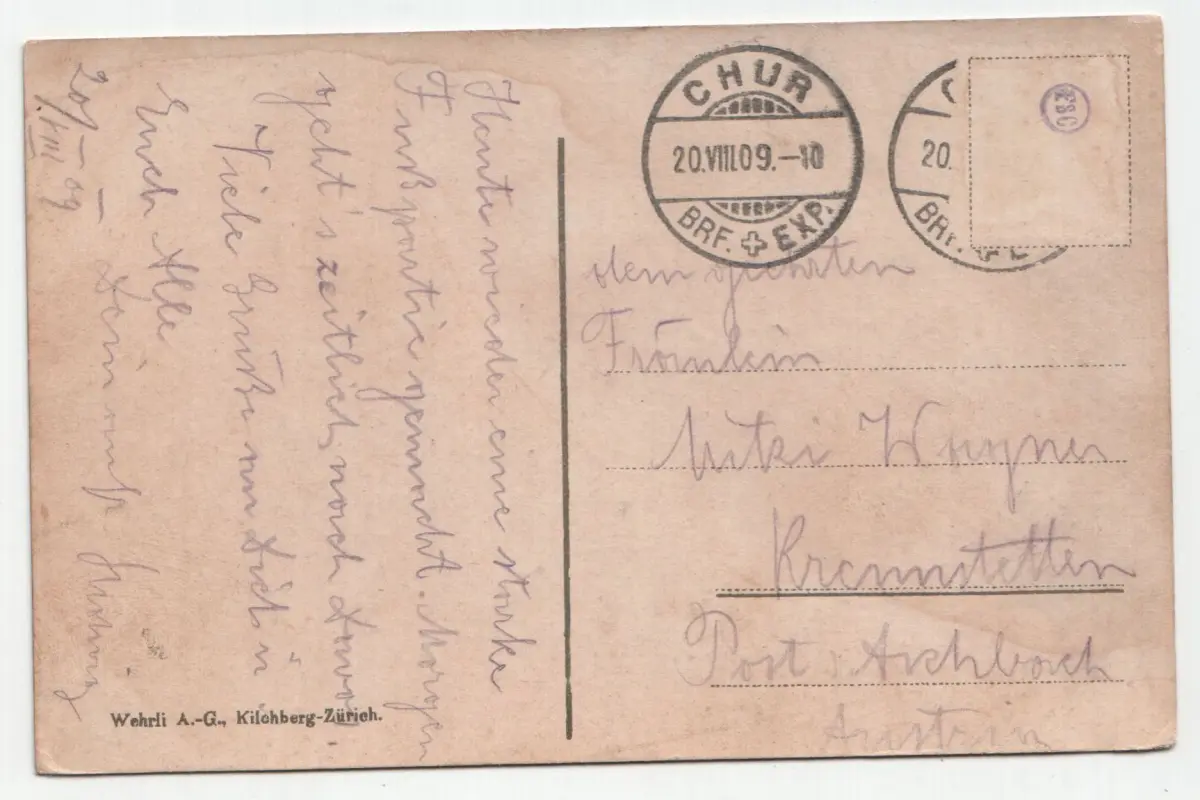 CHUR
20.VIII.09.-10
BRF. EXP.
20.
dem geehrten
Fräulein
Mitzi Wagner
Krennstetten
Post: Aschbach
Austria
Heute wieder eine starke
Fußpartie gemacht. Morgen
geht's zeitlich nach Davos.
Viele Grüße an Dich u
Euch Alle
Dein
20/VIII 09
Wehrli A.-G., Kilchberg-Zürich.